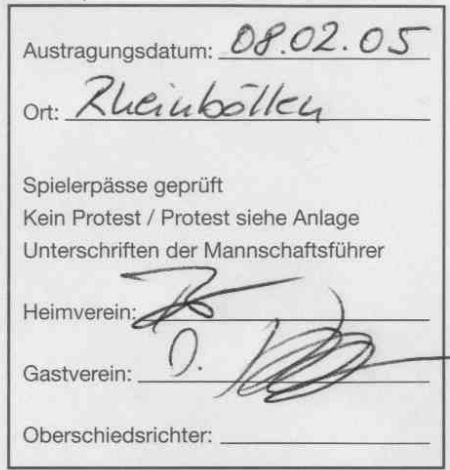 Austragungsdatum: 08.02.05
Ort: Rheinböllen
Spielerpässe geprüft
Kein Protest / Protest siehe Anlage
Unterschriften der Mannschaftsführer
Heimverein:
Gastverein:
Oberschiedsrichter: